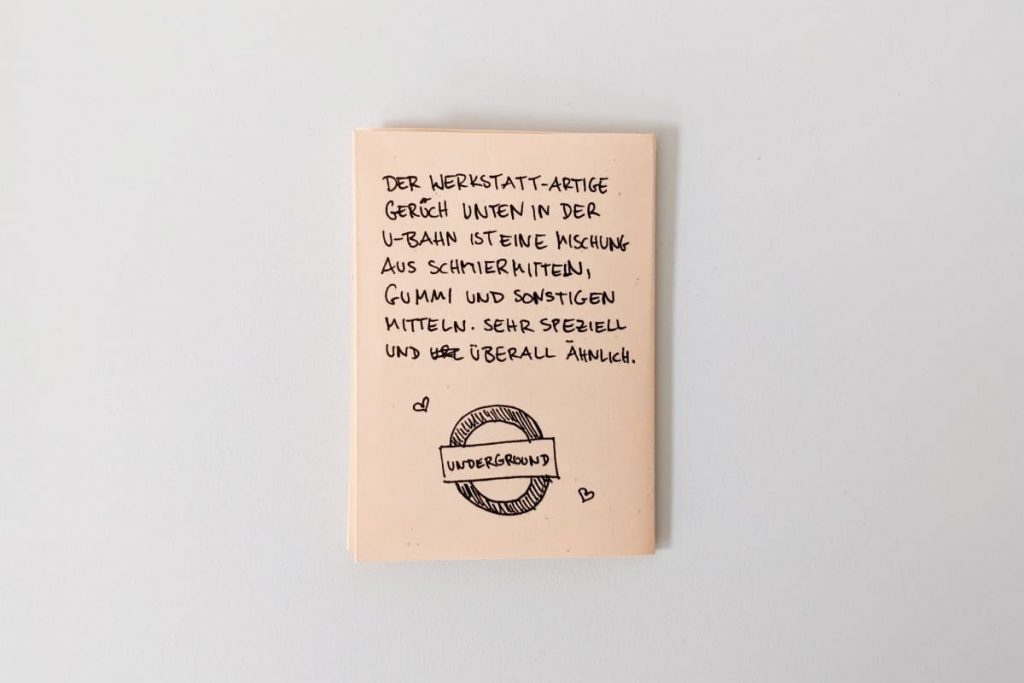 DER WERKSTATT-ARTIGE
GERUCH UNTEN IN DER
U-BAHN IST EINE MISCHUNG
AUS SCHMIERMITTELN,
GUMMI UND SONSTIGEN
MITTELN. SEHR SPEZIELL
UND ÜBERALL ÄHNLICH.
UNDERGROUND